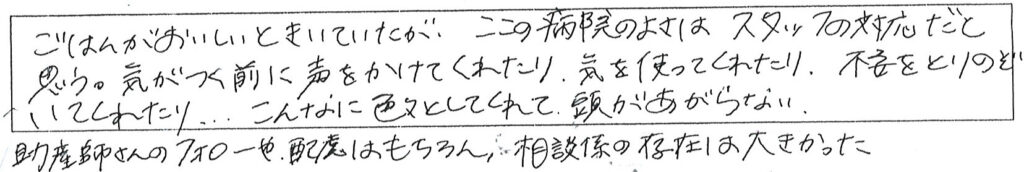 ごはんがおいしいときいていたが、ここの病院のよさは スタッフの対応だと
思う。気がつく前に声をかけてくれたり、気を使ってくれたり、不安をとりのぞ
いてくれたり... こんなに色々としてくれて、頭があがらない、
助産師さんのフォローや、配慮はもちろん、相談係の存在は大きかった